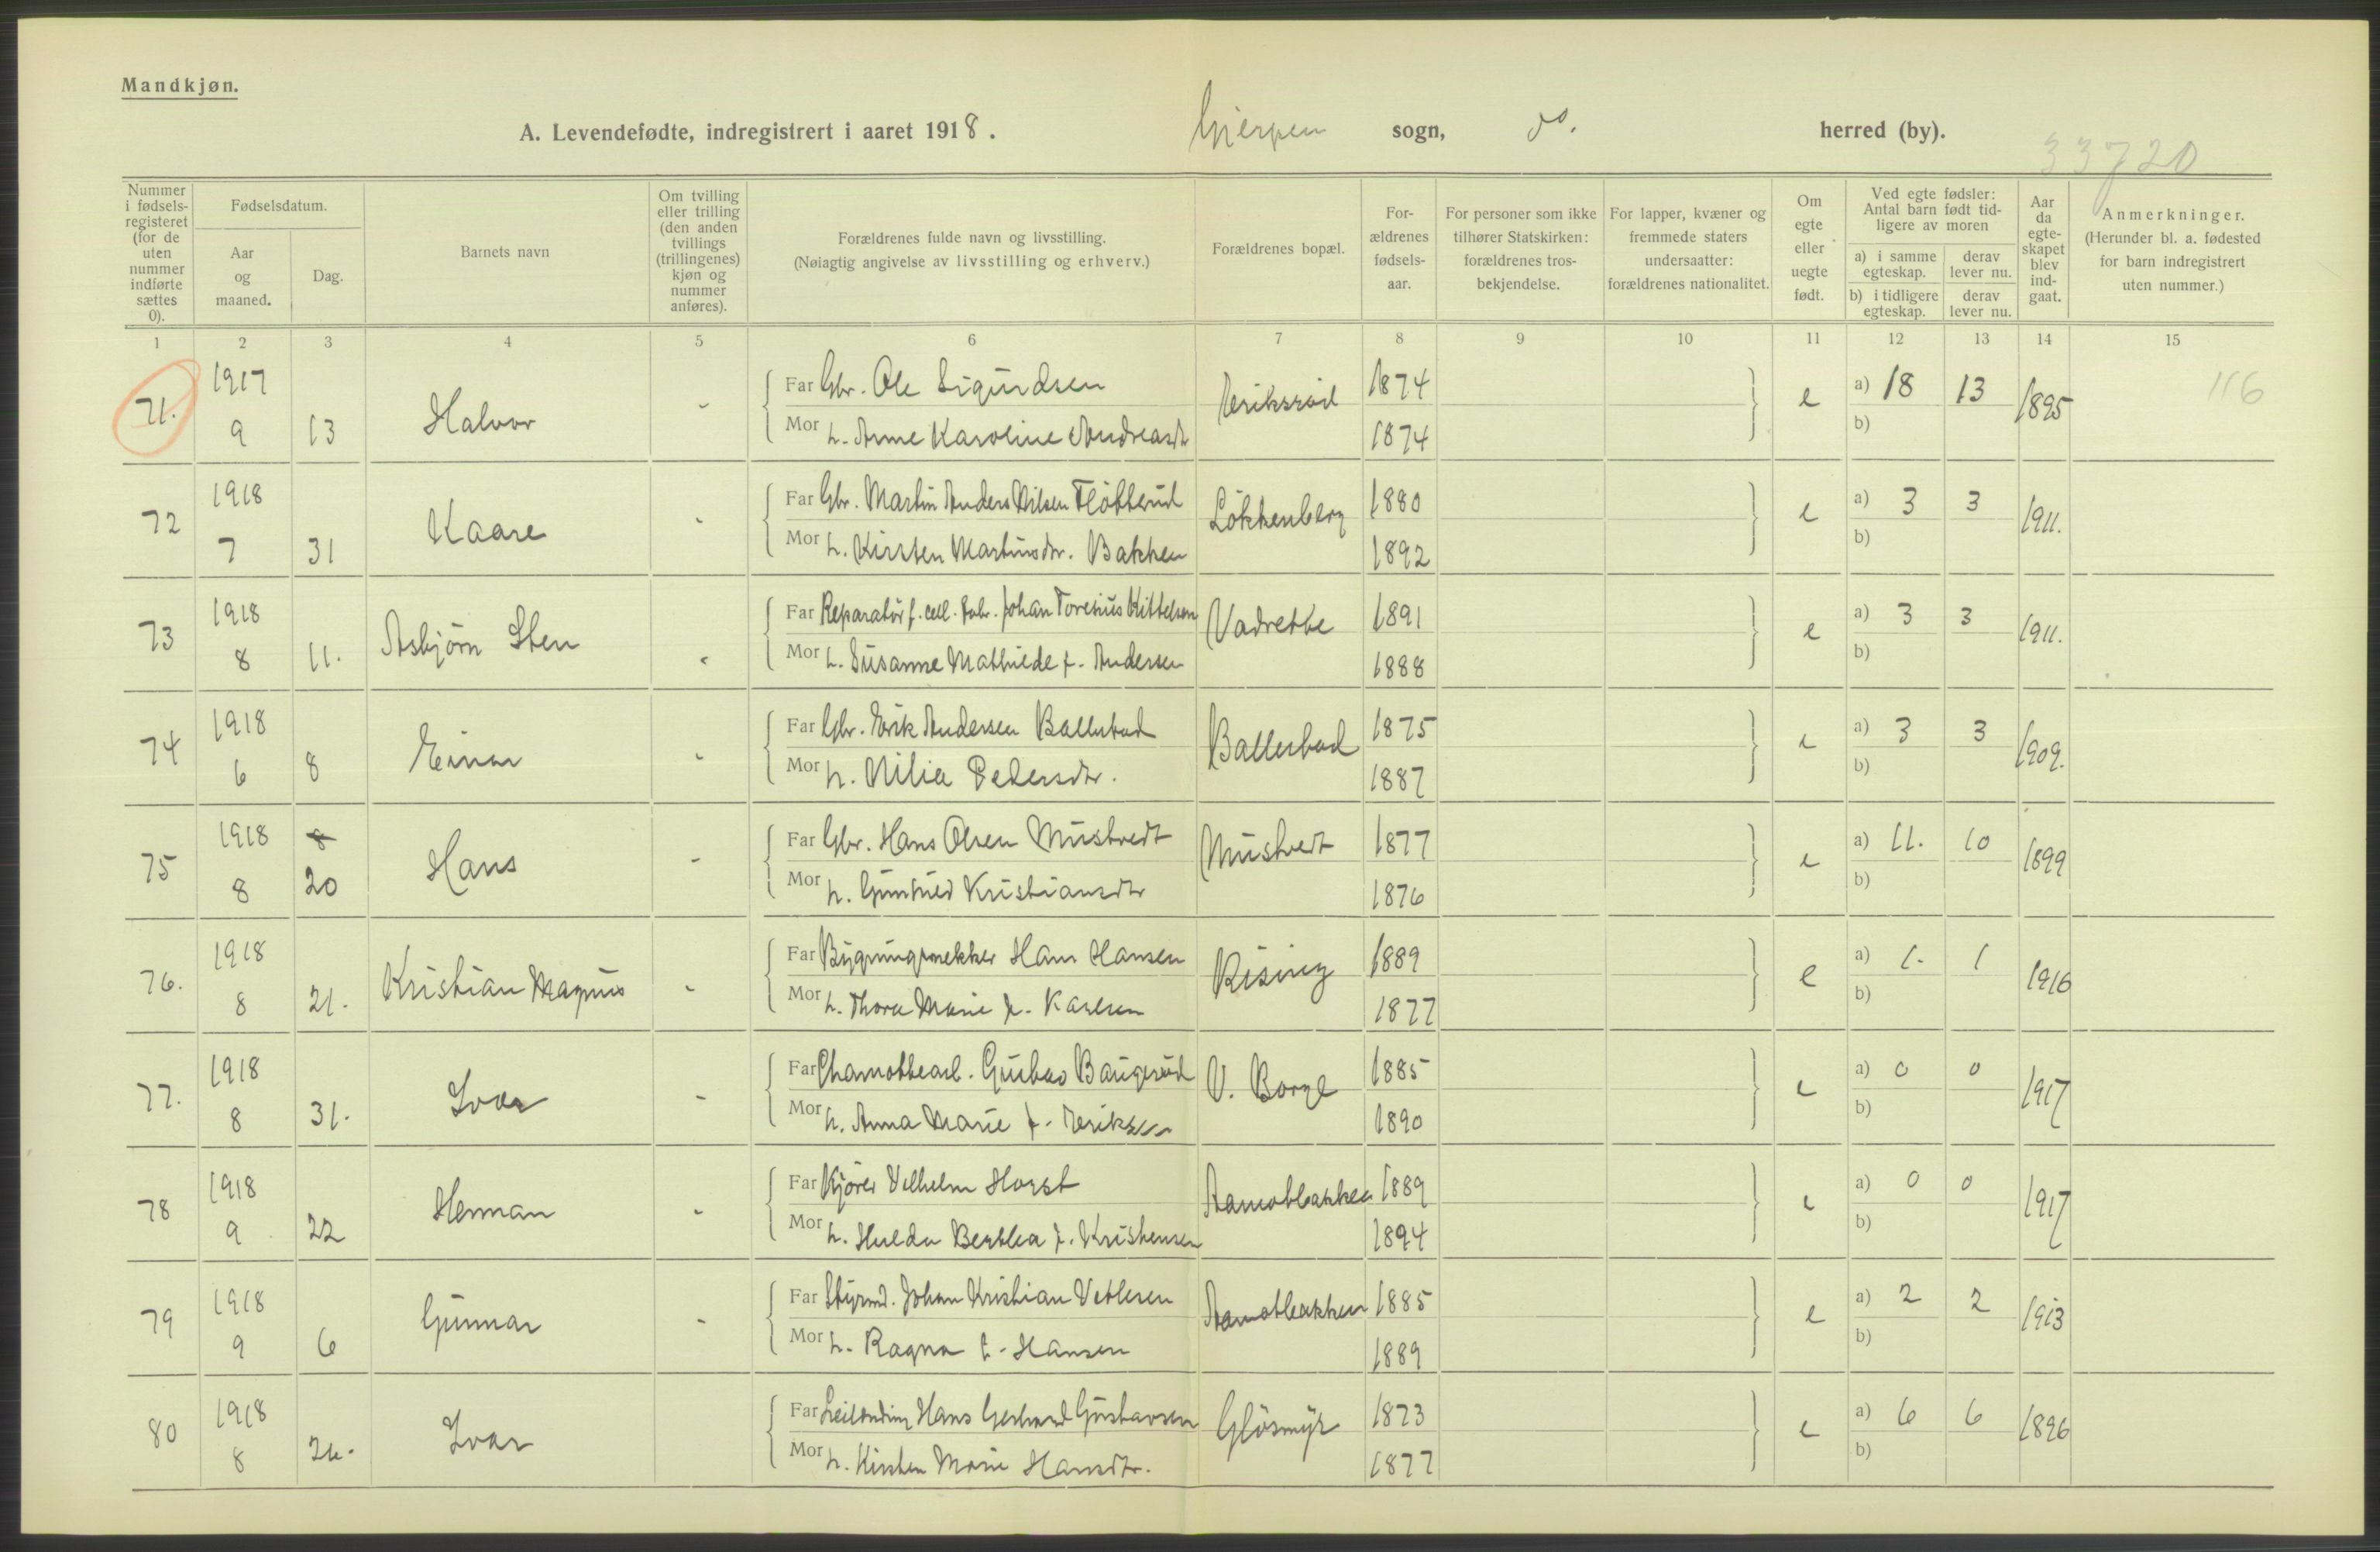 Mandkjøn.
A. Levendefødte, indregistrert i aaret 1918. Gjerpen sogn, do. herred (by).
33720
Nummer i fødsels-registeret (for de uten nummer indførte sættes 0).
Fødselsdatum.
Aar og maaned.
Dag.
Barnets navn
Om tvilling eller trilling (den anden tvillings (trillingenes) kjøn og nummer anføres).
Forældrenes fulde navn og livsstilling.
(Nøiagtig angivelse av livsstilling og erhverv.)
Forældrenes bopæl.
For-ældrenes fødsels-aar.
For personer som ikke tilhører Statskirken: forældrenes tros-bekjendelse.
For lapper, kvæner og fremmede staters undersaatter: forældrenes nationalitet.
Om egte eller uegte født.
Ved egte fødsler: Antal barn født tid-ligere av moren
a) i samme egteskap.
derav lever nu.
b) i tidligere egteskap.
derav lever nu.
Aar da egte-skapet blev ind-gaat.
Anmerkninger.
(Herunder bl. a. fødested for barn indregistrert uten nummer.)
1 2 3 4 5 6 7 8 9 10 11 12 13 14 15
71. 1917 9 13 Halvor -
Far Gbr. Ole Sigurdsen 1874
Mor h. Anne Karoline Andreasdtr 1874
Eriksrød e a) 18 13 1895 116
b)
72 1918 7 31 Kaare -
Far Gbr. Martin Anders Nilsen Fløtterud 1880
Mor h. Kirsten Martinsdtr. Bakken 1892
Løkkenberg e a) 3 3 1911.
b)
73 1918 8 11. Asbjörn Sten -
Far Reparatör f. cell. fabr. Johan Toresius Kittelsen 1891
Mor h. Susanne Mathilde f. Andersen 1888
Vadrette e a) 3 3 1911.
b)
74 1918 6 8 Einar -
Far Gbr. Erik Andersen Ballestad 1875
Mor h. Nilia Pedersdtr. 1887
Ballestad e a) 3 3 1909.
b)
75 1918 8 8 20 Hans -
Far Gbr. Hans Olsen Mustvedt 1877
Mor h. Gunhild Kristiansdtr 1876
Mustvedt e a) 11. 10 1899
b)
76. 1918 8 21. Kristian Magnus -
Far Bygningsnekker Hans Hansen 1889
Mor h. Thora Marie f. Karlsen 1877
Rising e a) 1. 1 1916
b)
77. 1918 8 31. Ivar -
Far Chamottearb. Gustav Baugerud 1885
Mor h. Anna Marie f. Eriksen 1890
V. Borge e a) 0 0 1917
b)
78 1918 9 22 Herman -
Far Kjörer Vilhelm Horst 1889
Mor h. Hulda Berthea f. Kristensen 1894
Aamotbakken e a) 0 0 1917
b)
79 1918 9 6 Gunnar -
Far Styrmd. Johan Kristian Vetlesen 1885
Mor h. Ragna f. Hansen 1889
Aamotbakken e a) 2 2 1913
b)
80 1918 8 26. Ivar
Far Leilending Hans Gerhard Gustavsen 1873
Mor h. Kirsten Marie Hansdtr. 1877
Gløsmyr e a) 6 6 1896
b)